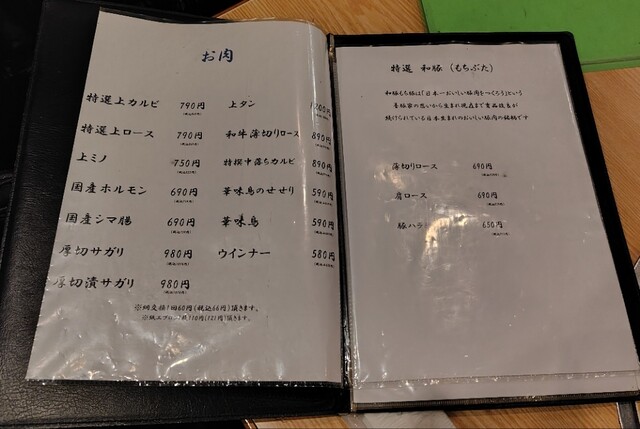 お肉
特選上カルビ 790円
特選上ロース 790円
上ミノ 750円
国産ホルモン 690円
国産シマ腸 690円
厚切サガリ 980円
厚切漬サガリ 980円
上タン
和牛薄切りロース 890円
特撰中落ちカルビ 890円
華味鳥のせせり 590円
華味鳥 590円
ウインナー 580円
※網交換1回60円(税込66円)頂きます。
※紙エプロン1枚110円(121円)頂きます。
特選 和豚（もちぶた）
和豚もち豚は「日本一おいしい豚肉をつくろう」という
養豚家の思いから生まれ現在まで食品改良が
続けられている日本生まれのおいしい豚肉の銘柄です
薄切りロース 690円
肩ロース 690円
豚ハラミ 650円